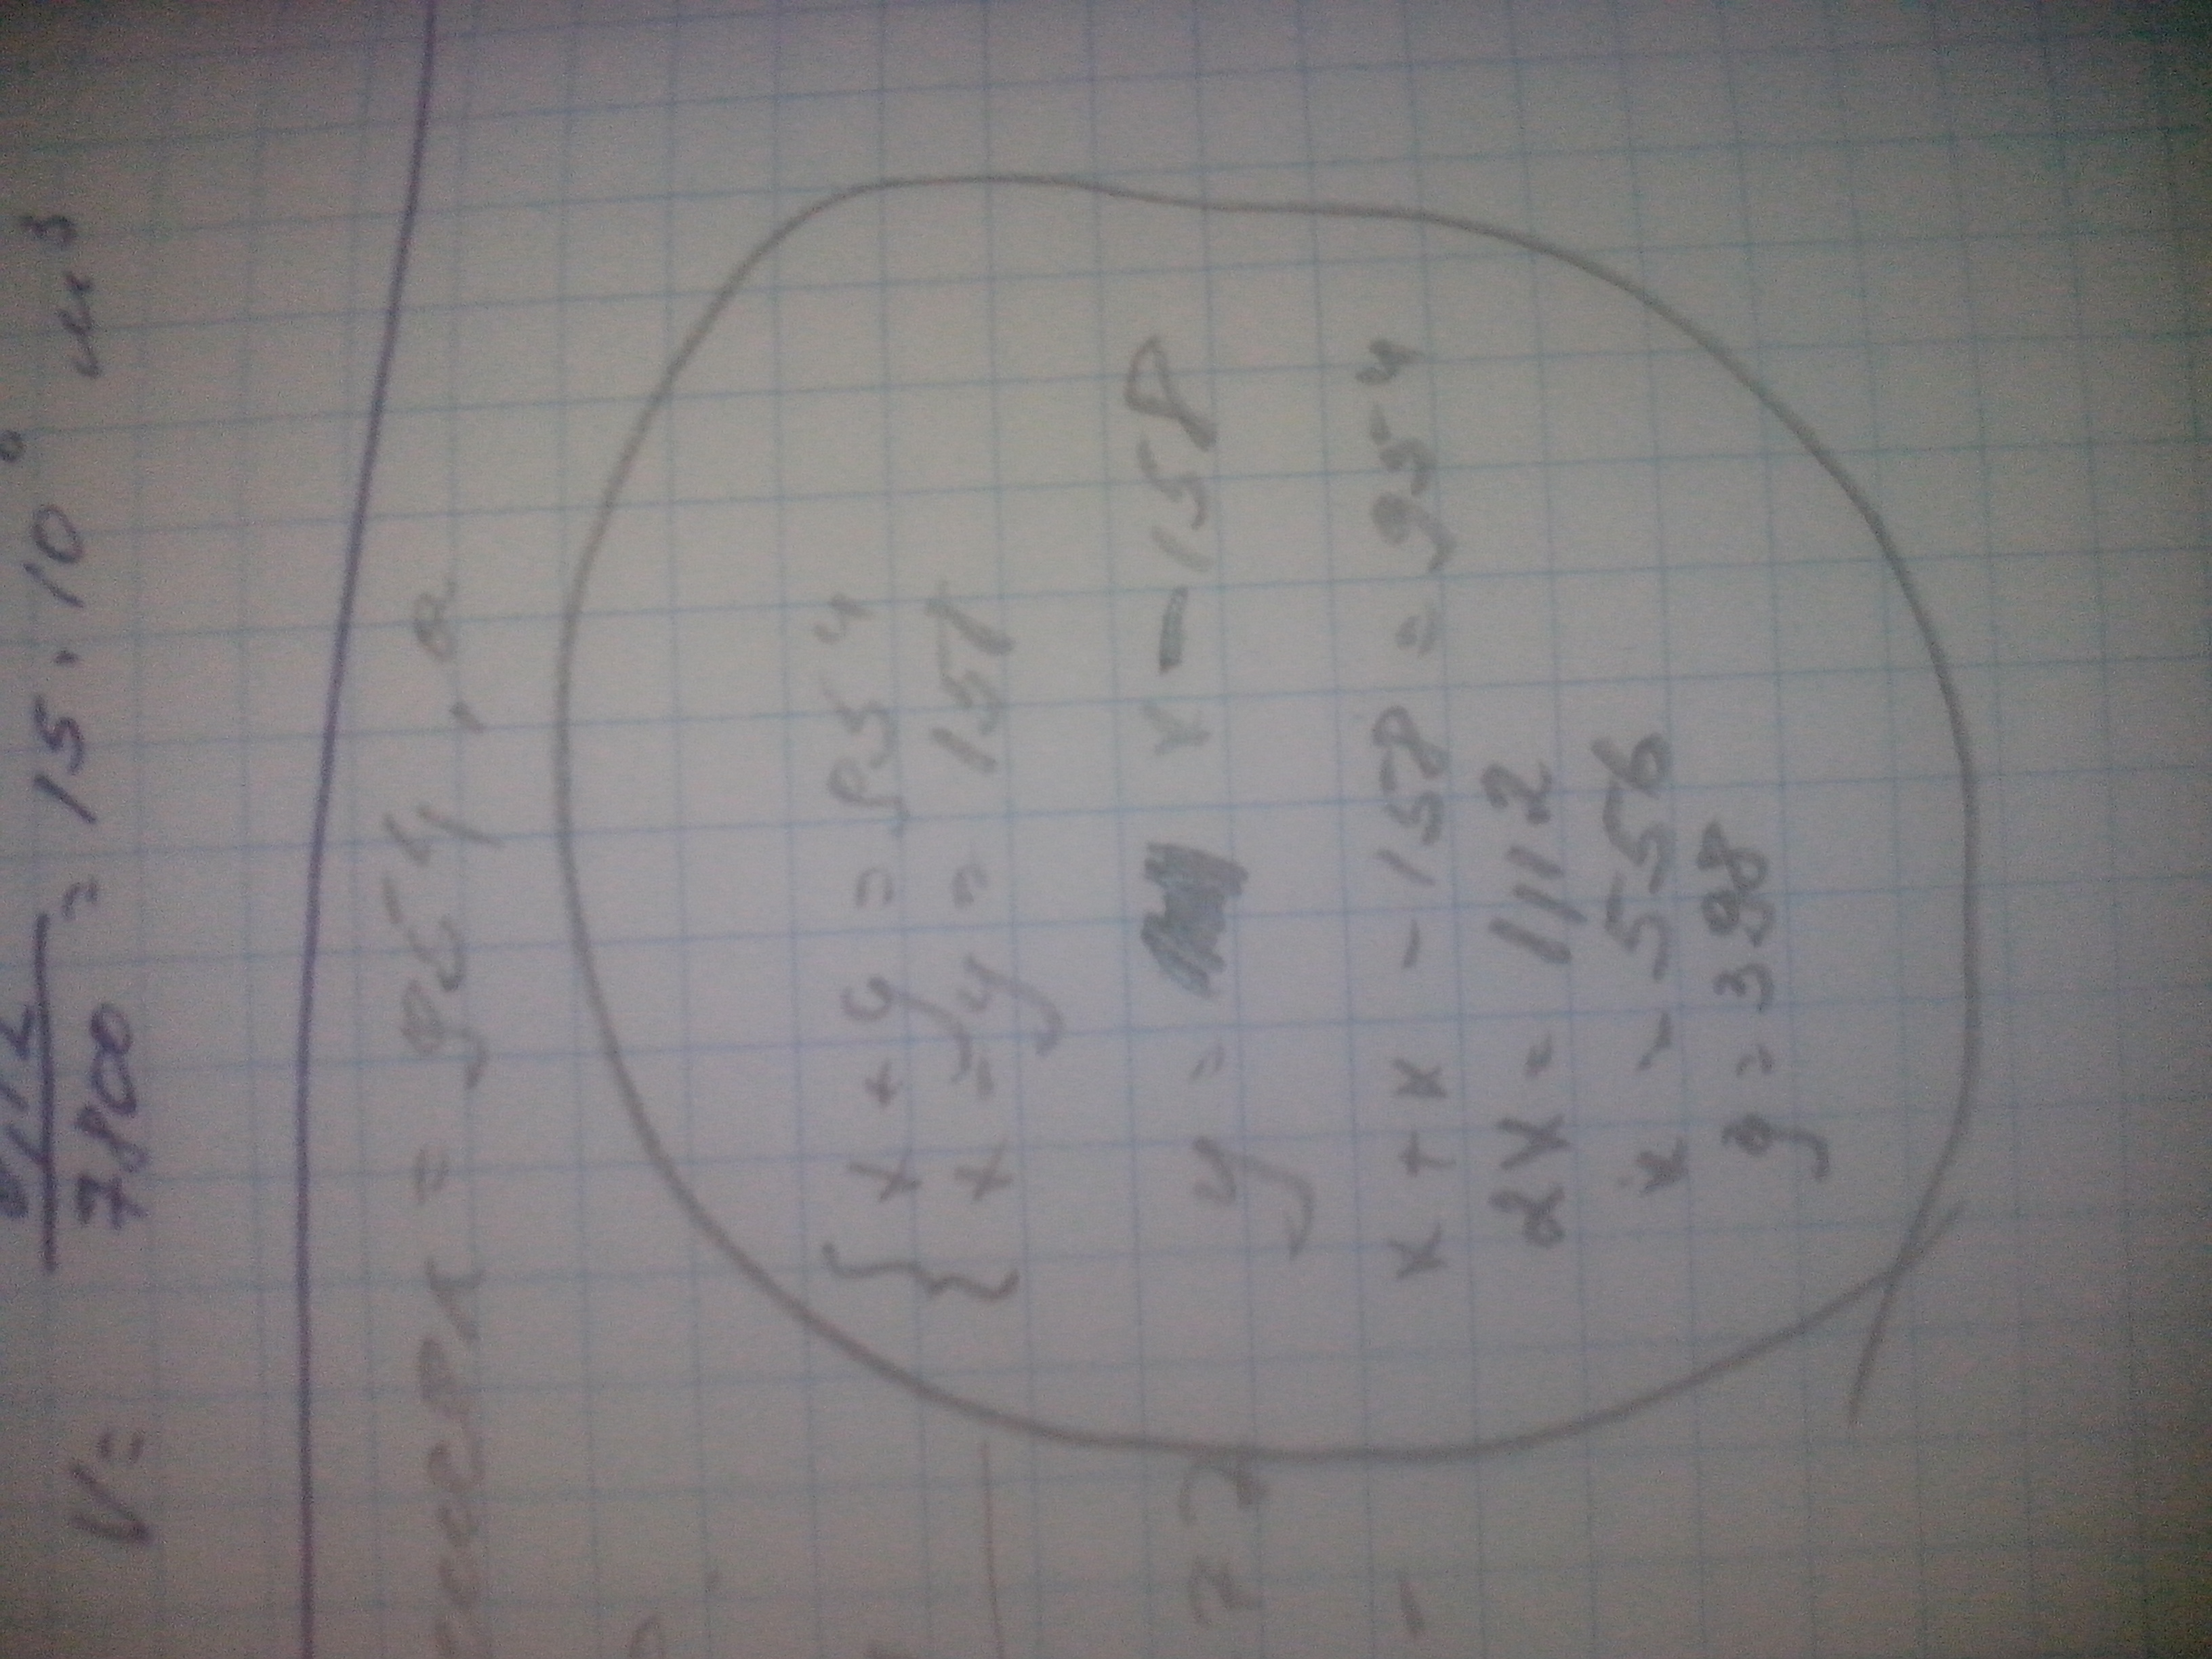 V = 7800 = 15 · 10 м³
= 954
{ x + y = 954
x - y = 158
y = x - 158
x + x - 158 = 954
2x = 1112
x = 556
y = 398